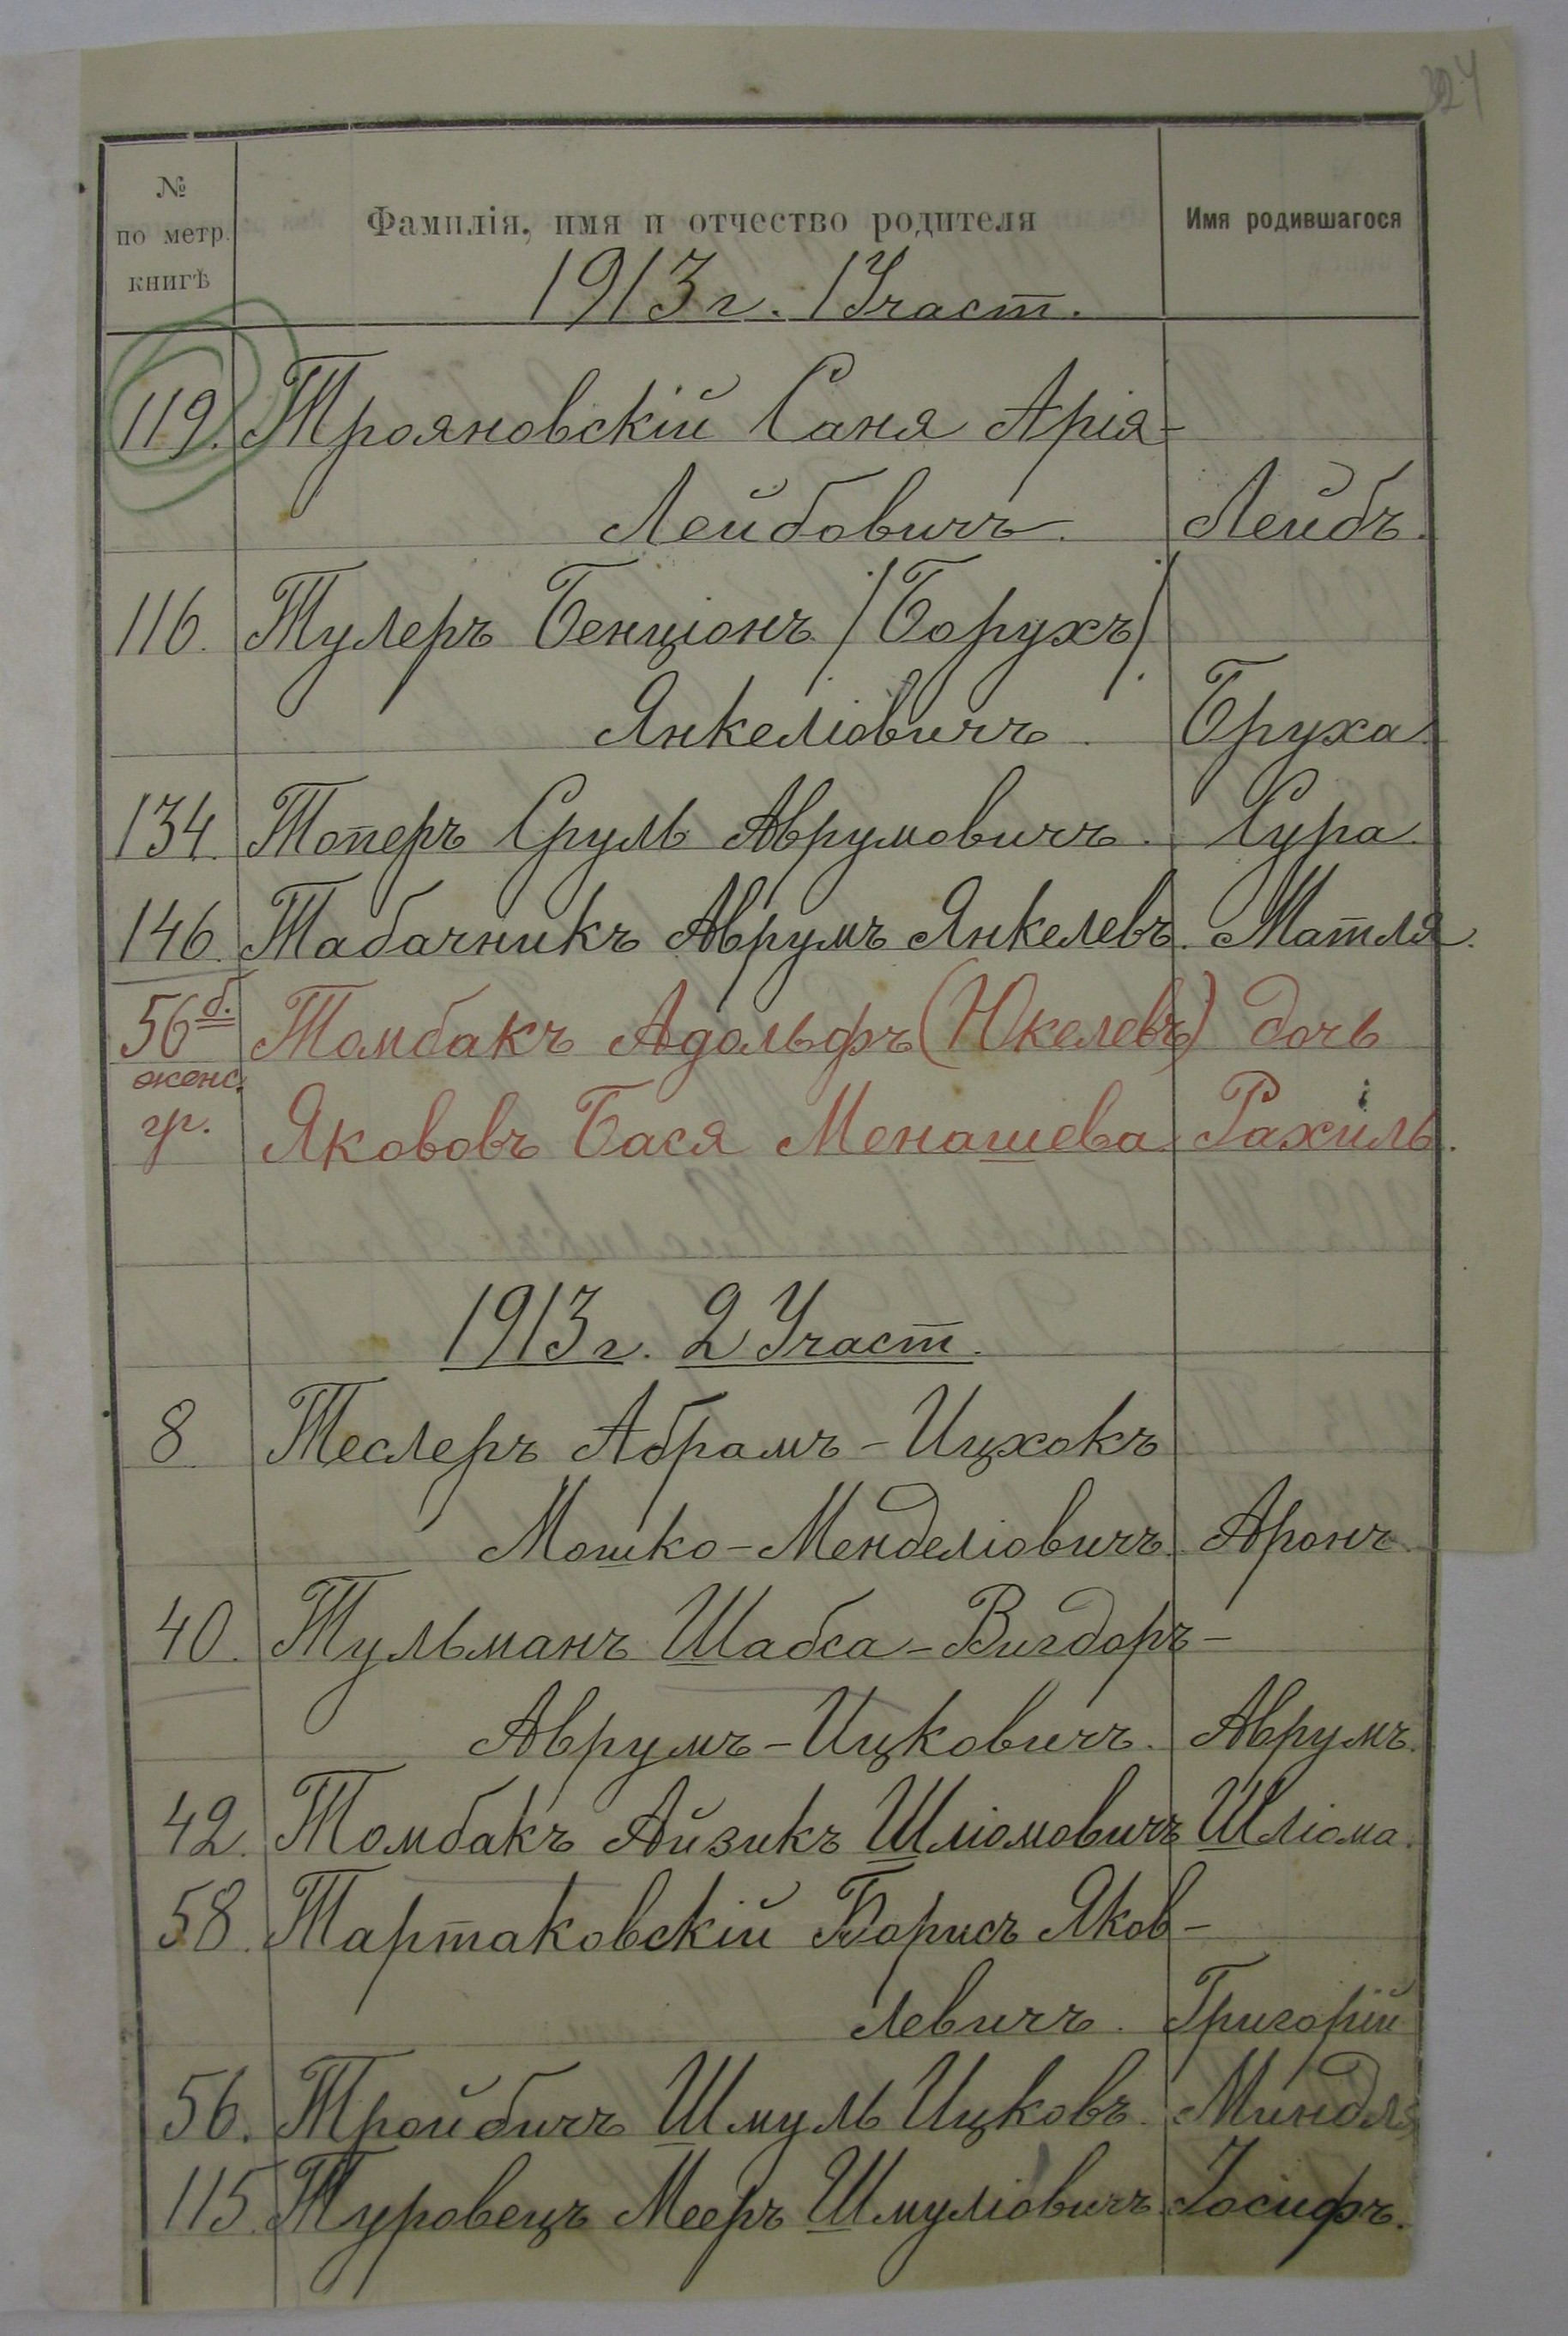 324
№
по метр.
книгѣ
Фамилія, имя и отчество родителя
Имя родившагося
1913 г. 1 Участ.
119. Трояновскій Саня Арія-
Лейбовичъ. Лейбъ.
116. Тулеръ Бенціонъ /Борухъ/
Янкеліовичъ. Бруха.
134. Топеръ Сруль Аврумовичъ. Сура.
146. Табачникъ Аврумъ Янкелевъ. Матля.
56 б. Томбакъ Адольфъ (Юкелевъ) дочь
женс.
гр. Якововъ Бася Менашева Рахиль.
1913 г. 2 Участ.
8 Теслеръ Абрамъ-Ицхокъ
Мошко-Менделіовичъ. Аронъ.
40. Тульманъ Шабса-Вигдоръ-
Аврумъ-Ицковичъ. Аврумъ.
42. Томбакъ Айзикъ Шліомовичъ Шліома.
58. Тартаковскій Борисъ Яков-
левичъ. Григорій
56. Тройбичъ Шмуль Ицковъ. Миндля
115. Туровецъ Мееръ Шмуліовичъ. Іосифъ.